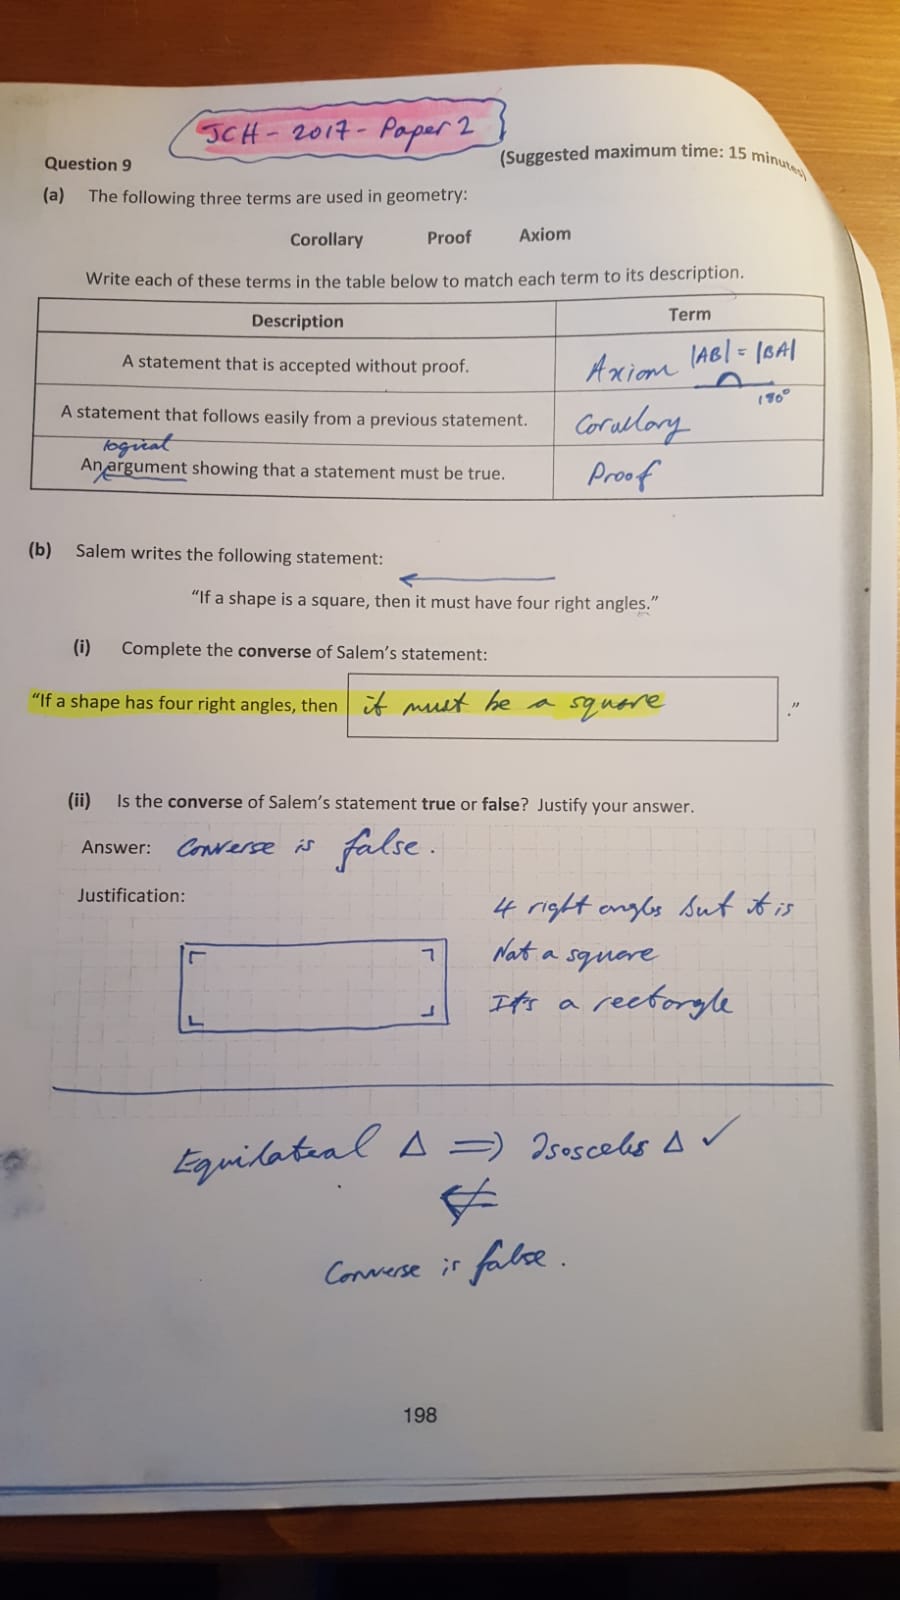 JCH - 2017 - Paper 2
Question 9
(Suggested maximum time: 15 minutes)
(a) The following three terms are used in geometry:
Corollary Proof Axiom
Write each of these terms in the table below to match each term to its description.
Description Term
A statement that is accepted without proof. Axiom |AB| = |BA|
180°
A statement that follows easily from a previous statement. Corollary
logical
An argument showing that a statement must be true. Proof
(b) Salem writes the following statement:
“If a shape is a square, then it must have four right angles.”
(i) Complete the converse of Salem’s statement:
“If a shape has four right angles, then it must be a square .”
(ii) Is the converse of Salem’s statement true or false? Justify your answer.
Answer: Converse is false.
Justification:
4 right angles but it is
Not a square
It's a rectangle
Equilateral Δ ⇒ Isosceles Δ ✓
⇍
Converse is false.
198